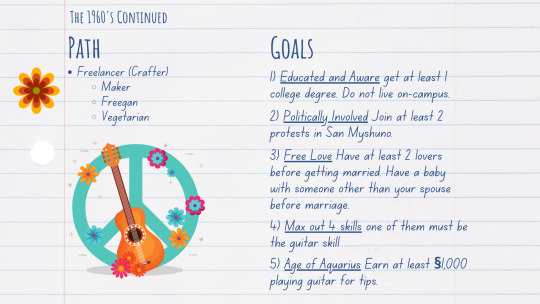 The 1960's Continued
Path
• Freelancer (Crafter)
○ Maker
○ Freegan
○ Vegetarian
Goals
1) Educated and Aware get at least 1
college degree. Do not live on-campus.
2) Politically Involved Join at least 2
protests in San Myshuno.
3) Free Love Have at least 2 lovers
before getting married. Have a baby
with someone other than your spouse
before marriage.
4) Max out 4 skills one of them must be
the guitar skill
5) Age of Aquarius Earn at least §1,000
playing guitar for tips.